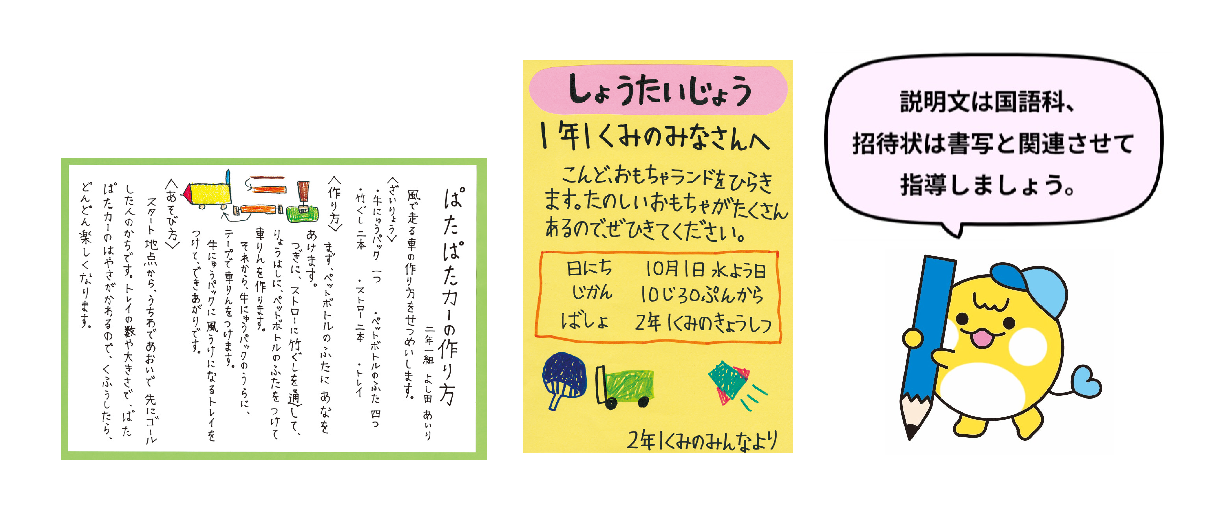 ぱたぱたカーの作り方
二年一組 よし田 あいり
風で走る車の作り方をせつめいします。
〈ざいりょう〉
・牛にゅうパック 一つ ・ペットボトルのふた 四つ
・竹ぐし 二本 ・ストロー 二本 ・トレイ
〈作り方〉
まず、ペットボトルのふたに あなを
あけます。
つぎに、ストローに竹ぐしを通して、
りょうはしに、ペットボトルのふたをつけて
車りんを作ります。
それから、牛にゅうパックのうらに、
テープで車りんをつけます。
牛にゅうパックに 風うけになるトレイを
つけて、できあがりです。
〈あそび方〉
スタート地点から、うちわであおいで 先にゴール
した人のかちです。トレイの数や大きさで、ぱた
ぱたカーのはやさがかわるので、くふうしたら、
どんどん楽しくなります。
しょうたいじょう
1年1くみのみなさんへ
こんど、おもちゃランドをひらき
ます。たのしいおもちゃがたくさん
あるので、ぜひきてください。
日にち 10月1日 水よう日
じかん 10じ30ぷんから
ばしょ 2年1くみのきょうしつ
2年1くみのみんなより
説明文は国語科、
招待状は書写と関連させて
指導しましょう。